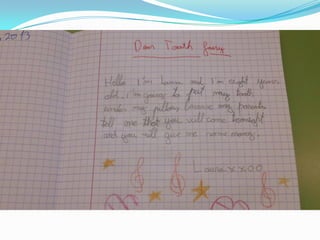 2013
Dear Tooth fairy
Hello I'm Laura and I'm eight years
old. I'm going to put my tooth
under my pillow, because my parents
tell me that you will come tonight
and you will give me some money.
Laura x x O O